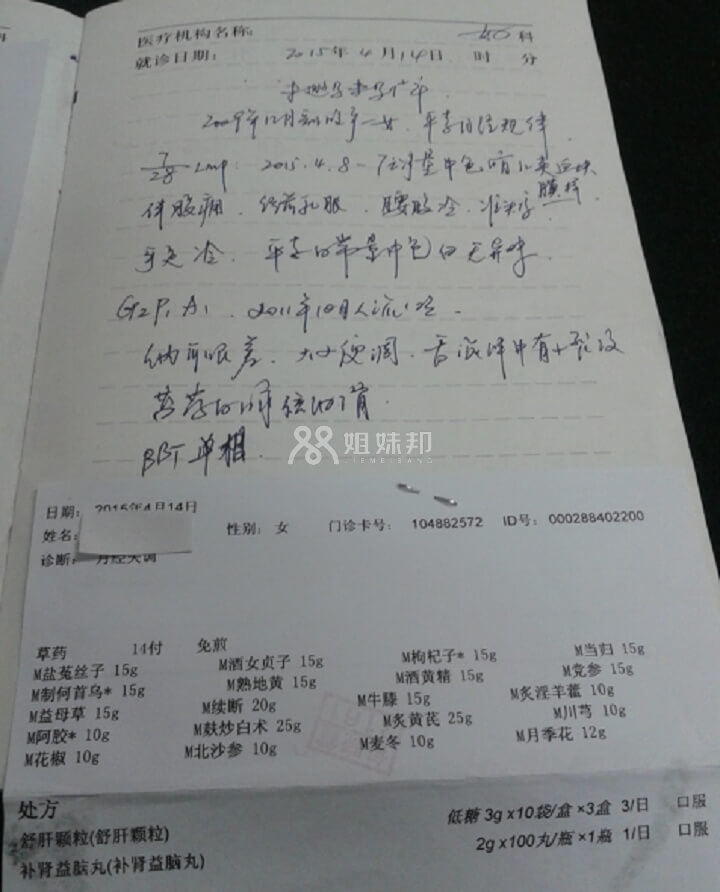 医疗机构名称:
科
就诊日期: 2015年4月14日 时 分
未避孕未孕1年
2009年12月剖腹产一女. 平素月经规律
7/28 Lmp: 2015.4.8-7天净 量中色暗
伴腹痛. 经前乳胀. 腰腹冷.
膜样
手足冷. 平素白带量中色白无异味.
G2P1A1. 2011年10月人流1次.
纳可眠差. 大小便调. 舌
BBT 单相.
姐妹邦
JIEMEIBANG
日期: 2015年4月14日
姓名: 性别: 女 门诊卡号: 104882572 ID号: 000288402200
诊断: 月经失调
草药 14付 免煎
M盐菟丝子 15g M酒女贞子 15g M枸杞子* 15g M当归 15g
M制何首乌* 15g M熟地黄 15g M酒黄精 15g M党参 15g
M益母草 15g M续断 20g M牛膝 15g M炙淫羊藿 10g
M阿胶* 10g M麸炒白术 25g M炙黄芪 25g M川芎 10g
M花椒 10g M北沙参 10g M麦冬 10g M月季花 12g
处方
舒肝颗粒(舒肝颗粒) 低糖 3g x10袋/盒 ×3盒 3/日 口服
补肾益脑丸(补肾益脑丸) 2g x100丸/瓶 ×1瓶 1/日 口服